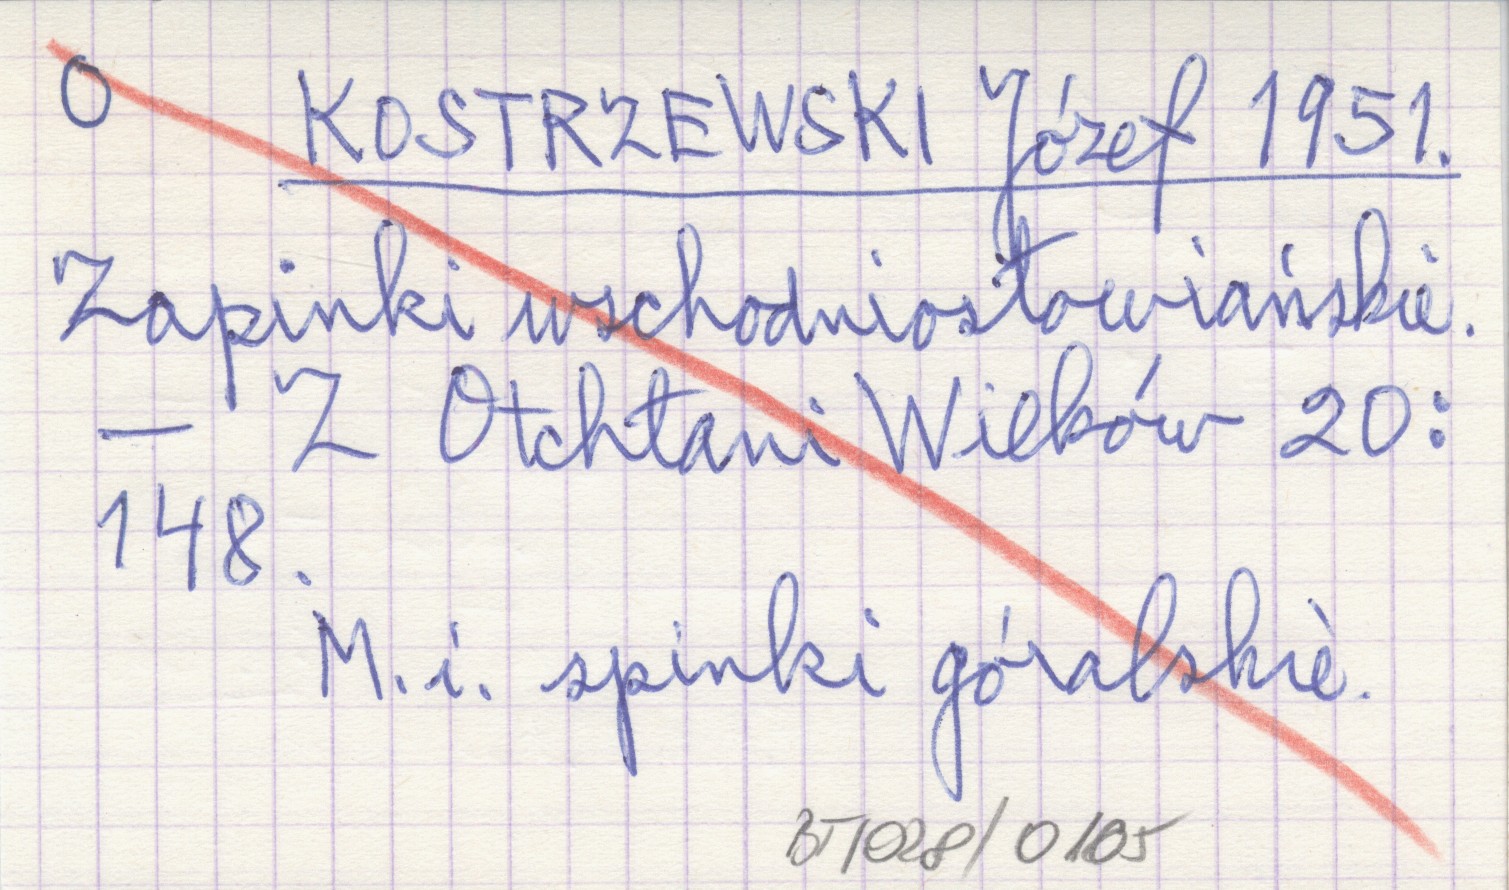 O KOSTRZEWSKI Józef 1951.
Zapinki wschodniosłowiańskie.
— Z Otchłani Wieków 20:
148.
M.i. spinki góralskie.
BT/028/0105